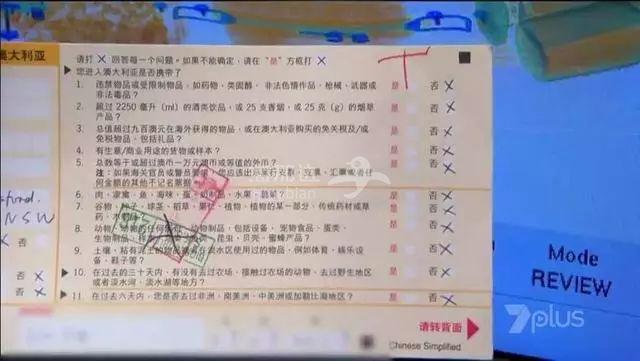 澳大利亚
请打 X 回答每一个问题。如果不能确定，请在“是”方框打 X
您进入澳大利亚是否携带了
1. 违禁物品或受限制物品，如药物、类固醇、非法色情作品、枪械、武器或
非法毒品？
是 否 X
2. 超过 2250 毫升（ml）的酒类饮品，或 25 支香烟，或 25 克（g）的烟草
产品？
是 否 X
3. 总值超过九百澳元在海外获得的物品，或在澳大利亚购买的免关税及/或
免税物品，包括礼品？
是 否 X
4. 有生意/商业用途的货物或样本？
是 否 X
5. 总数等于或超过澳币一万元澳币或等值的外币？
是 否 X
注：如果海关官员或警员要求，您应该出示旅行支票、汇票或者任
何金额的其他不记名票据
6. 肉、家禽、鱼、海味、蛋、奶制品、水果、蔬菜？
是 否 X
7. 谷物、种子、球茎、稻草、果仁、植物、植物的某一部分、传统药材或草
药、木
是 否 X
8. 动物、动物的任何部位、动物制品，包括设备、宠物食品、蛋类、
生物制品、昆虫、贝壳、蜜蜂产品？
是 否 X
9. 土壤，粘有泥土的物品或在淡水区使用过的物品，例如体育、娱乐设
备、鞋子等？
是 否 X
10. 在过去的三十天内，有没有去过农场、接触过农场的动物、去过野生地区
或者淡水河、淡水湖等地方？
是 否 X
11. 在过去六天内，您是否去过非洲、南美洲、中美洲或加勒比海地区？
是 否 X
NSW
否 X
X
否 X
请转背面
Chinese Simplified
Mode
REVIEW
7plus